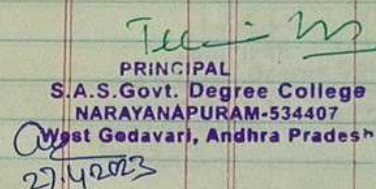 PRINCIPAL
S.A.S.Govt. Degree College
NARAYANAPURAM-534407
West Godavari, Andhra Pradesh
27.4.2023